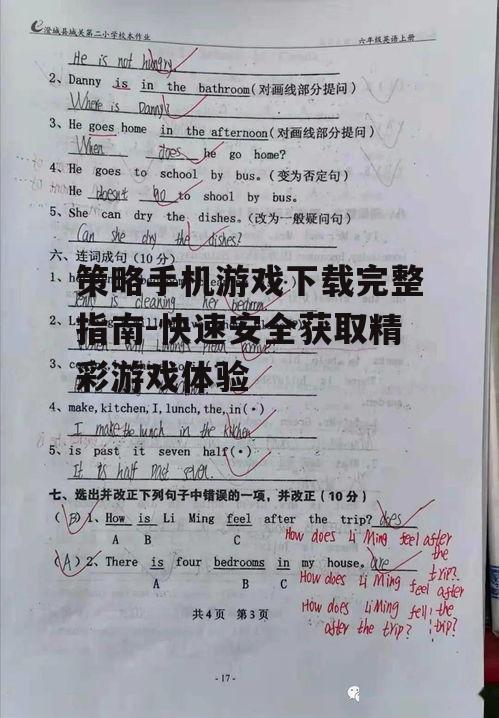 澄城县城关第二小学校本作业 六年级英语上册
He is not hungry
2、Danny is in the bathroom(对画线部分提问)
Where is Danny?
3、He goes home in the afternoon(对画线部分提问)
When does he go home?
4、He goes to school by bus.(变为否定句)
He doesn't go to shool by bus.
5、She can dry the dishes.(改为一般疑问句)
Can she dry the dishes?
六、连词成句(10分)
策略手机游戏下载完整
is cleaning her bedroom
指南-快速安全获取精
彩游戏体验
4、make,kitchen,I,lunch,the,in(·)
I make the lunch in the kitchen
5、is past it seven half(·)
It is half past seven.
七、选出并改正下列句子中错误的一项,并改正(10分)
(B)1、How is Li Ming feel after the trip? does
A B C
How does Li Ming feel after the trip?
(A)2、There is four bedrooms in my house. are
A B C
How does Li Ming feel after the trip?
How does Li Ming fell after the trip?
共4页 第3页
-17-